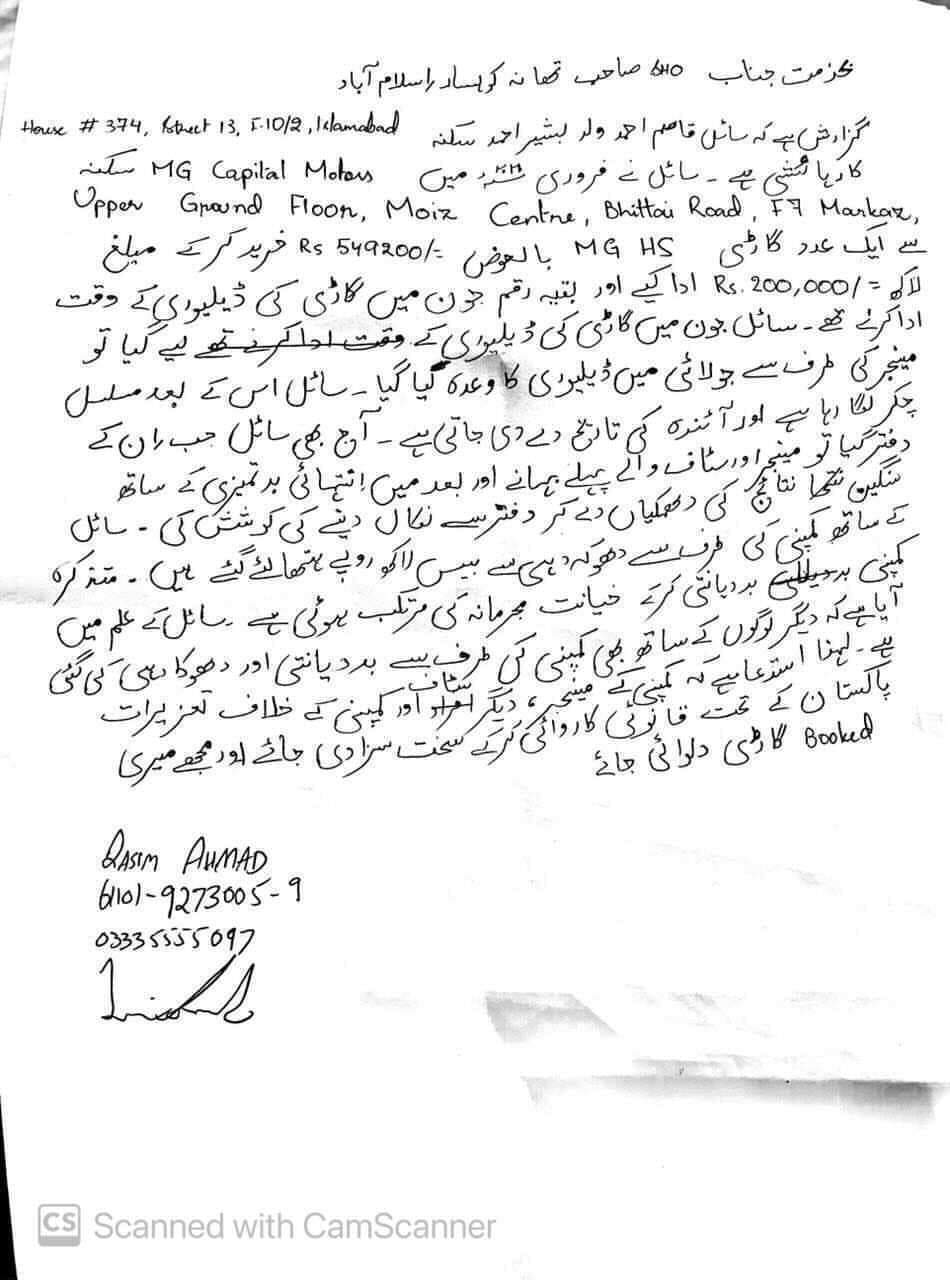 بخدمت جناب SHO صاحب تھانہ کوہسار اسلام آباد
گزارش ہے کہ سائل قاسم احمد ولد بشیر احمد سکنہ House # 374, Street 13, F-10/2, Islamabad
کا رہائشی ہے۔ سائل نے فروری میں MG Capital Motors سکنہ
Upper Ground Floor, Moiz Centre, Bhittai Road, F7 Markaz,
سے ایک عدد گاڑی MG HS بالعوض Rs 549200/= خرید کر کے مبلغ
لاکھ Rs. 200,000/= ادا کیے اور بقیہ رقم جون میں گاڑی کی ڈیلیوری کے وقت
ادا کرنے تھے۔ سائل جون میں گاڑی کی ڈیلیوری کے وقت ادا کرنے تھے لیے گیا تو
مینجر کی طرف سے جولائی میں ڈیلیوری کا وعدہ کیا گیا۔ سائل اس کے بعد مسلسل
چکر لگا رہا ہے اور آئندہ کی تاریخ دے دی جاتی ہے۔ آج بھی سائل جب ان کے
دفتر گیا تو مینجر اور سٹاف والے پہلے بہانے اور بعد میں انتہائی بدتمیزی کے ساتھ
سنگین نتائج کی دھمکیاں دے کر دفتر سے نکال دینے کی کوشش کی۔ سائل
کے ساتھ کمپنی کی طرف سے دھوکہ دہی سے بیس لاکھ روپے ہتھا لئے گئے ہیں۔ متذکرہ
کمپنی بددیانتی کرکے خیانت مجرمانہ کی مرتکب ہوئی ہے۔ سائل کے علم میں
آیا ہے کہ دیگر لوگوں کے ساتھ بھی کمپنی کی طرف سے بددیانتی اور دھوکا دہی کی گئی
ہے۔ لہذا استدعا ہے کہ کمپنی کے مینجر، دیگر سٹاف اور کمپنی کے خلاف تعزیرات
پاکستان کے تحت قانونی کاروائی کرکے سخت سزا دی جائے اور مجھے میری
Booked گاڑی دلوائی جائے
QASIM AHMAD
61101-9273005-9
03335555097
CS Scanned with CamScanner